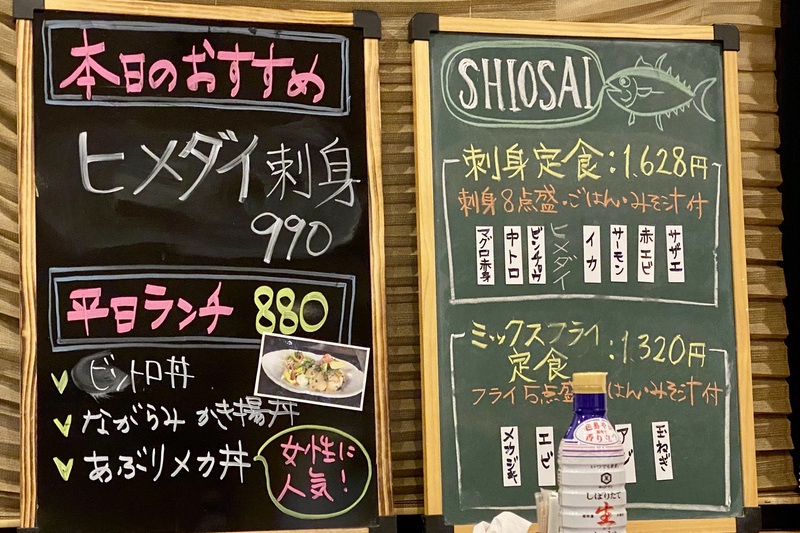 本日のおすすめ
ヒメダイ刺身
990
平日ランチ 880
ビントロ丼
ながらみ かき揚丼
あぶりメカ丼
女性に
人気!
SHIOSAI
刺身定食:1.628円
刺身8点盛・ごはん・みそ汁付
マグロ赤身
中トロ
ビンチョウ
ヒメダイ
イカ
サーモン
赤エビ
サザエ
ミックスフライ
定食:1.320円
フライ5点盛 はん・みそ汁付
メカジキ
エビ
ア
玉ねぎ
いつでも
しぼりたて
生